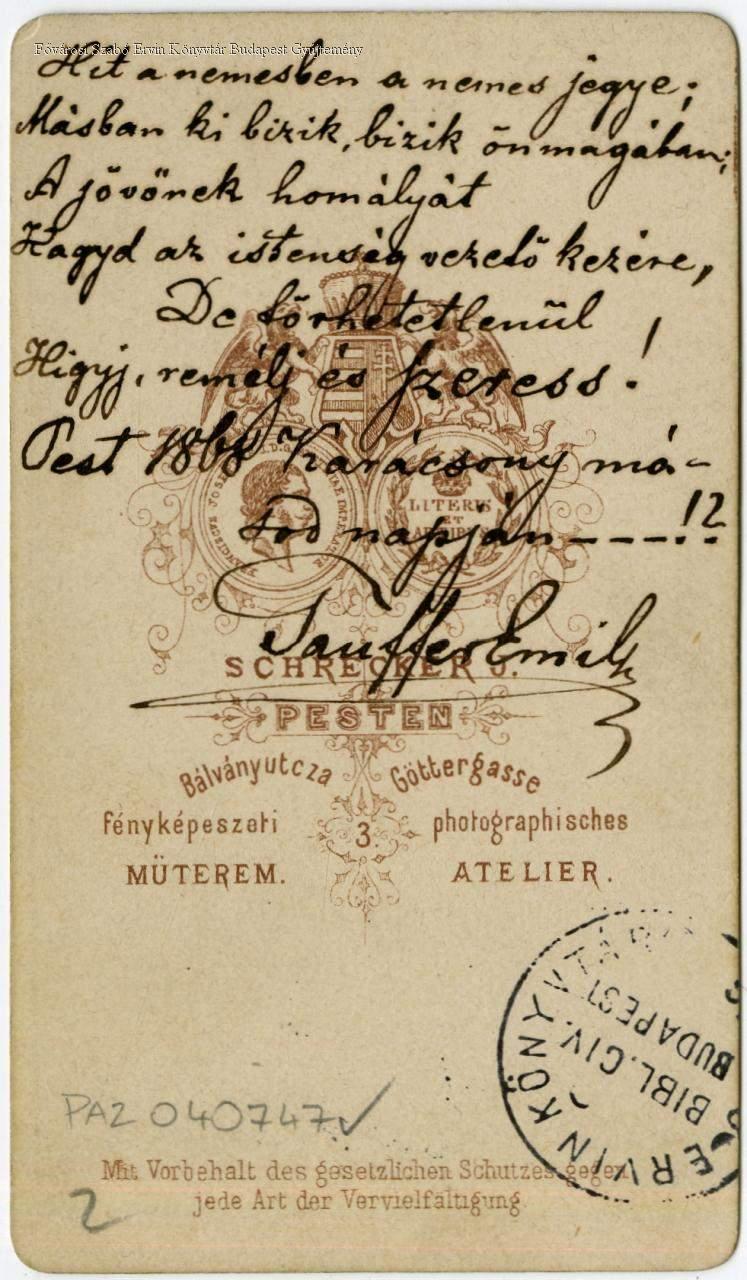 Fővárosi Szabó Ervin Könyvtár Budapest Gyűjtemény
Hit a nemesben a nemes jegye;
Másban ki bizik, bizik önmagában;
A jövőnek homályát
Hagyd az istenség vezető kezére,
De törhetetlenül
Higyj, remélj és szeress!
Pest 1868 Karácsony má-
sod napján – – – – !?
LITERIS
ET
Tauffer Emil
SCHRECKER J.
PESTEN
Bálványutcza Göttergasse
fényképeszeti 3. photographisches
MÜTEREM. ATELIER.
ERVIN KÖNY
BIBL. CIV.
BUDAPEST
PA2 040747 ✓
Mit Vorbehalt des gesetzlichen Schutzes gegen
jede Art der Vervielfältigung.
2